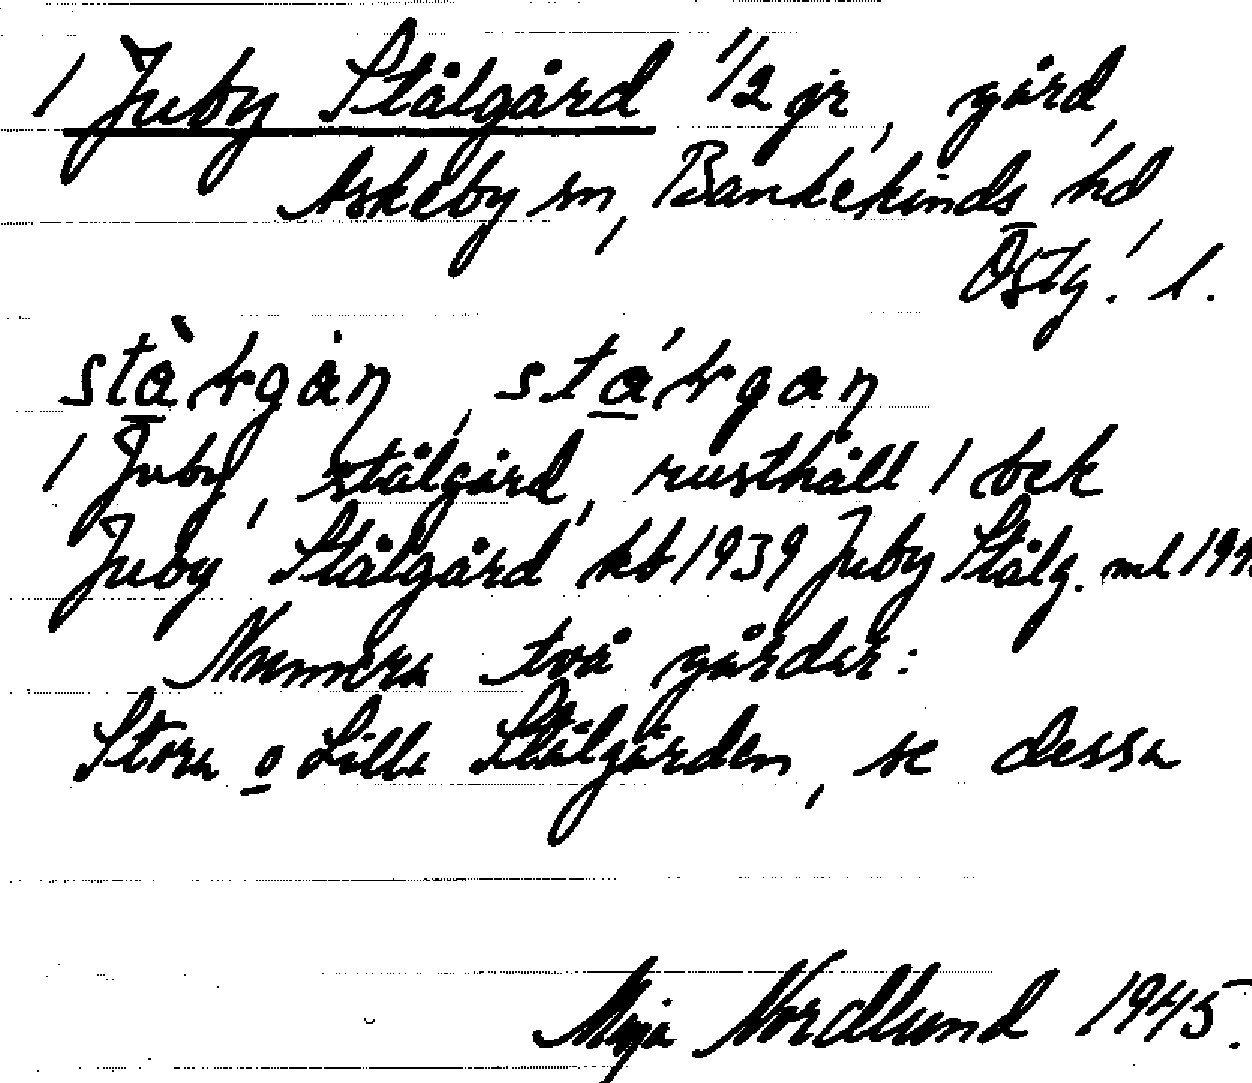 1 Juby Stålgård 1/2 jr, gård,
Askeby sn, Bankekinds hd,
Östg. l.
1 Juby, stålgård, rusthåll 1 bek
Juby Stålgård kb 1939 Juby Stålg. ml
Numera två gårdar:
Stora o Lilla Stålgården, se dessa
Maja Nordlund 1945.